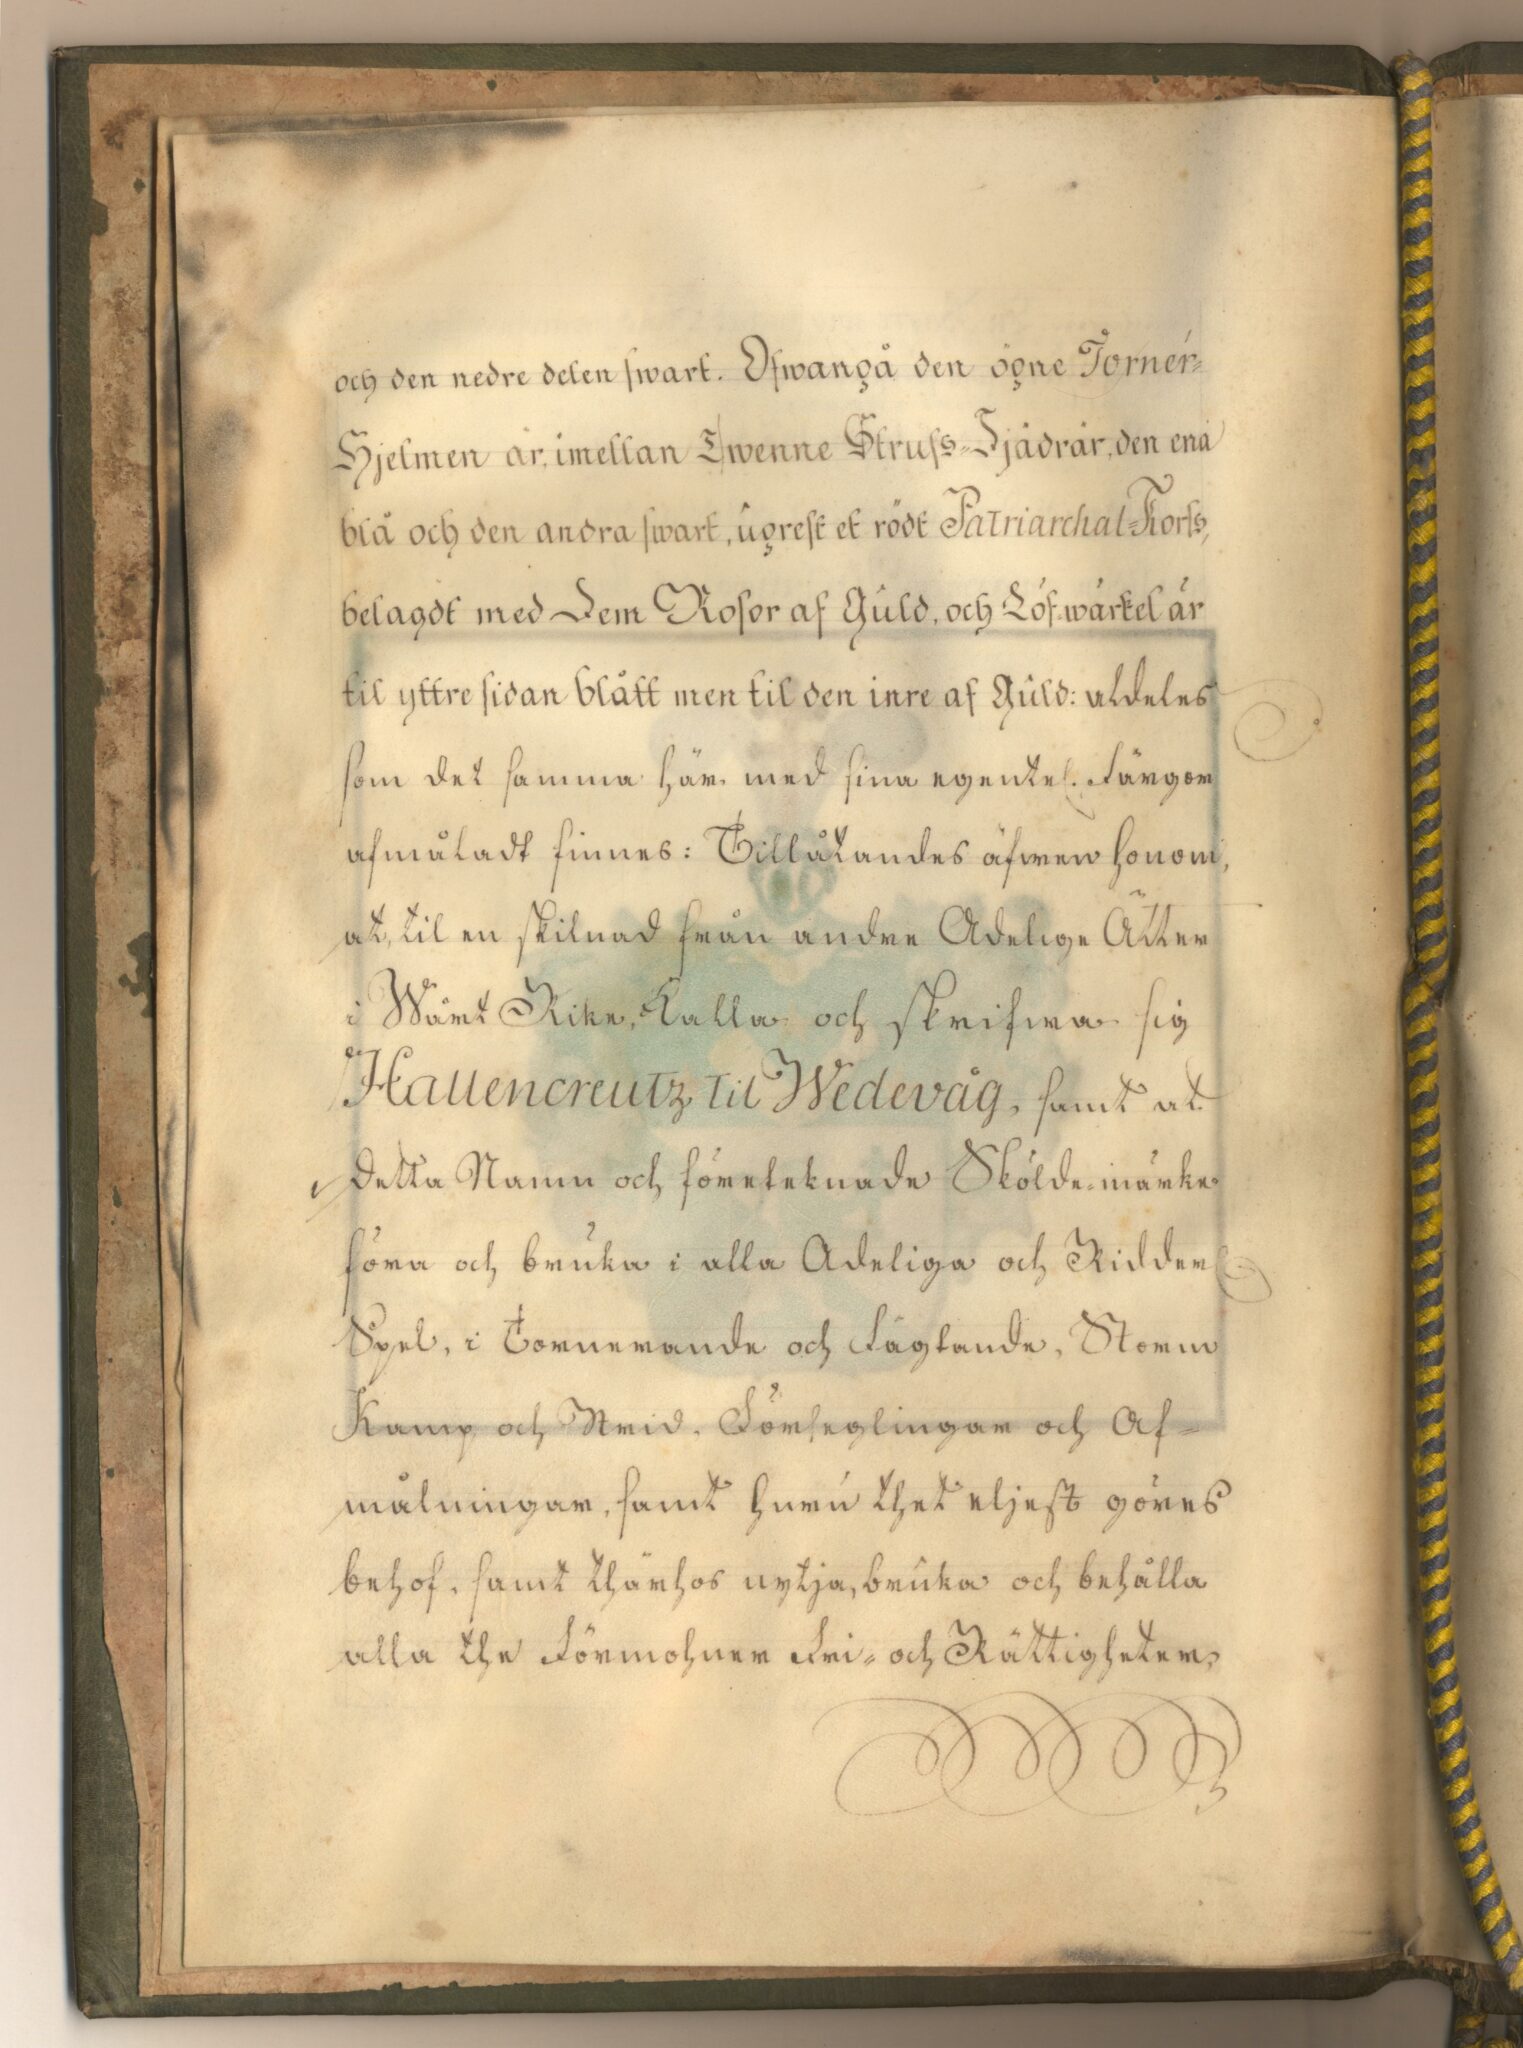 och den nedre delen swart. Ofwanpå den öpne Torner-
Hjelmen är, imellan Twenne Struss-Fjädrar, den ena
blå och den andra swart, uprest et rödt Patriarchal-Korss,
belagdt med Fem Rosor af Guld, och Löfwärket är
til yttre sidan blått men til den inre af Guld: aldeles
som det samma här med sina egentel. Färgor
afmåladt finnes: Tillåtandes äfwen honom,
at, til en skilnad från andre Adelige Ätter
i Wårt Rike, kalla och skrifwa sig
Hallencreutz til Wedevåg, samt at
detta Namn och företeknade Skölde-märke
föra och bruka i alla Adeliga och Ridder
Spel, i Tornerande och Fägtande, Storm
Kamp och Strid, Förseglingar och Af-
målningar, samt huru thet eljest göres
behof, samt thärhos nytja, bruka och behålla
alla the Förmohner Fri- och Rättigheter,